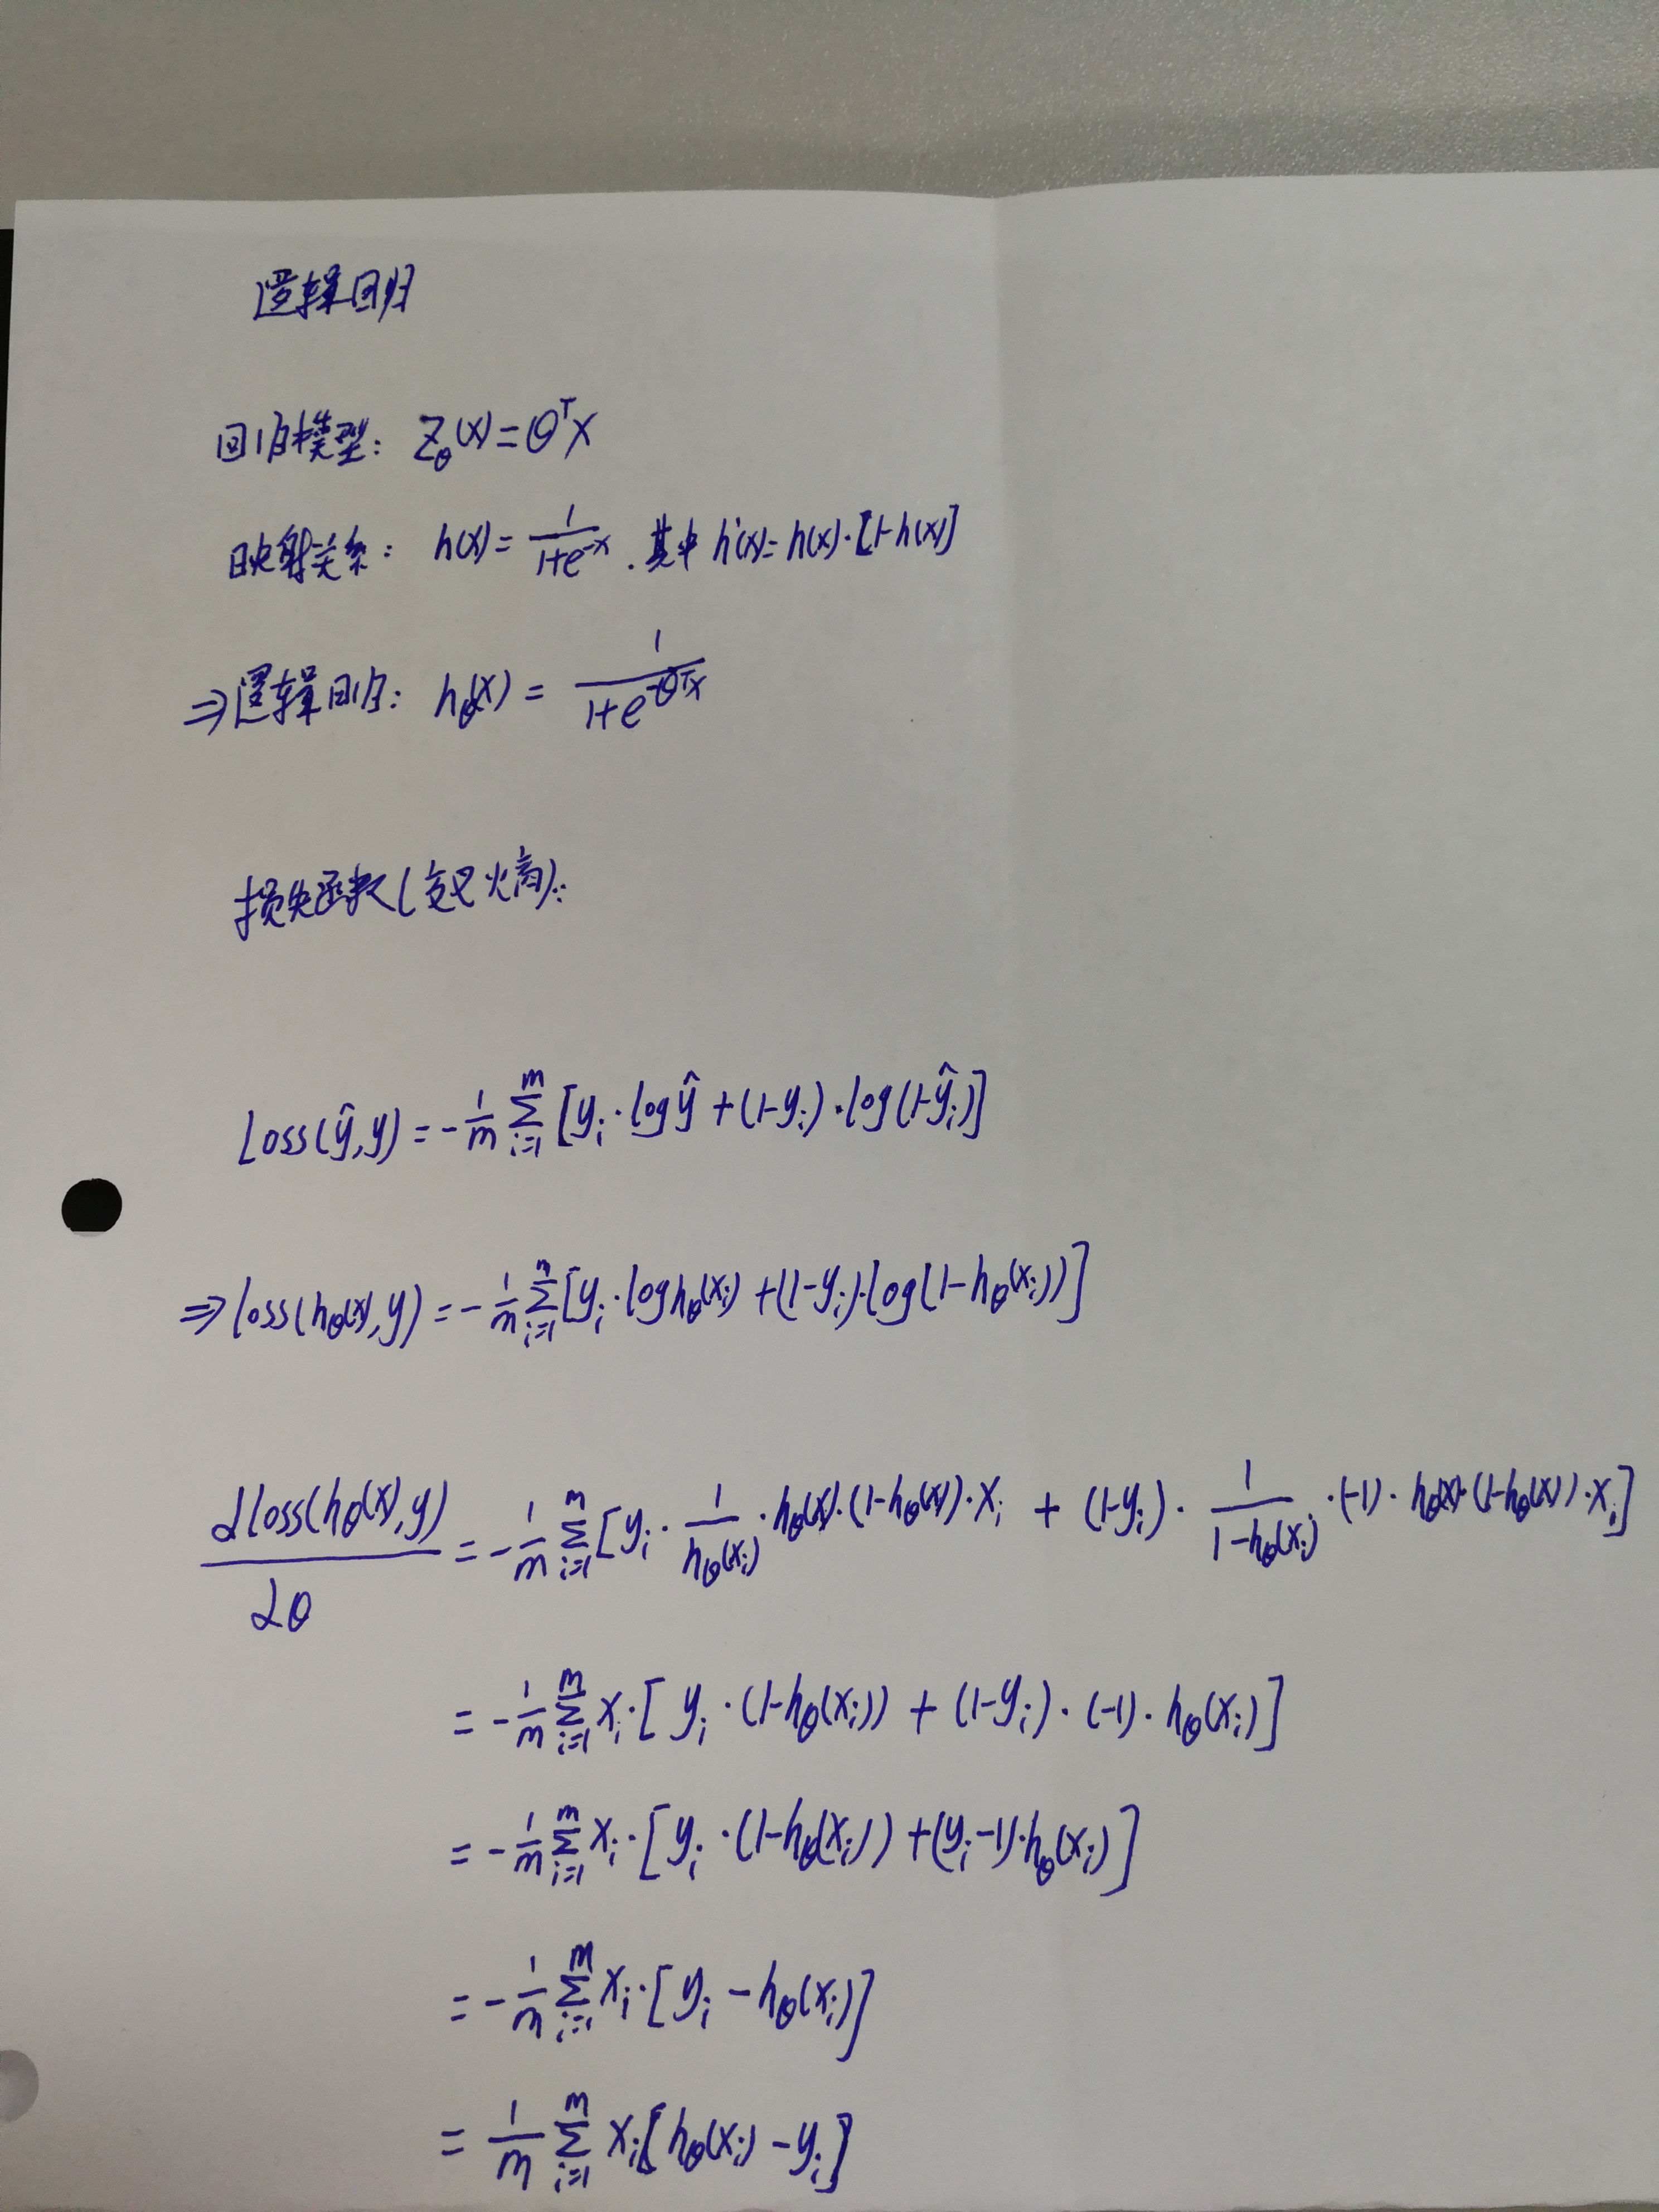 逻辑回归
回归模型: Z_θ(x) = θ^T x
映射关系: h(x) = 1/(1+e^{-x}). 其中 h'(x) = h(x)·[1-h(x)]
⇒逻辑回归: h_θ(x) = 1/(1+e^{-θ^T x})
损失函数(交叉熵):
Loss(ŷ,y) = -1/m ∑_{i=1}^{m} [y_i·log ŷ + (1-y_i)·log(1-ŷ_i)]
⇒loss(h_θ(x),y) = -1/m ∑_{i=1}^{m} [y_i·log h_θ(x_i) + (1-y_i)·log(1-h_θ(x_i))]
∂loss(h_θ(x),y)/∂θ = -1/m ∑_{i=1}^{m} [y_i · 1/h_θ(x_i) · h_θ(x)·(1-h_θ(x))·x_i + (1-y_i) · 1/(1-h_θ(x_i)) ·(-1)· h_θ(x)·(1-h_θ(x))·x_i]
= -1/m ∑_{i=1}^{m} x_i·[y_i·(1-h_θ(x_i)) + (1-y_i)·(-1)·h_θ(x_i)]
= -1/m ∑_{i=1}^{m} x_i·[y_i·(1-h_θ(x_i)) + (y_i-1)·h_θ(x_i)]
= -1/m ∑_{i=1}^{m} x_i·[y_i - h_θ(x_i)]
= 1/m ∑_{i=1}^{m} x_i[h_θ(x_i) - y_i]